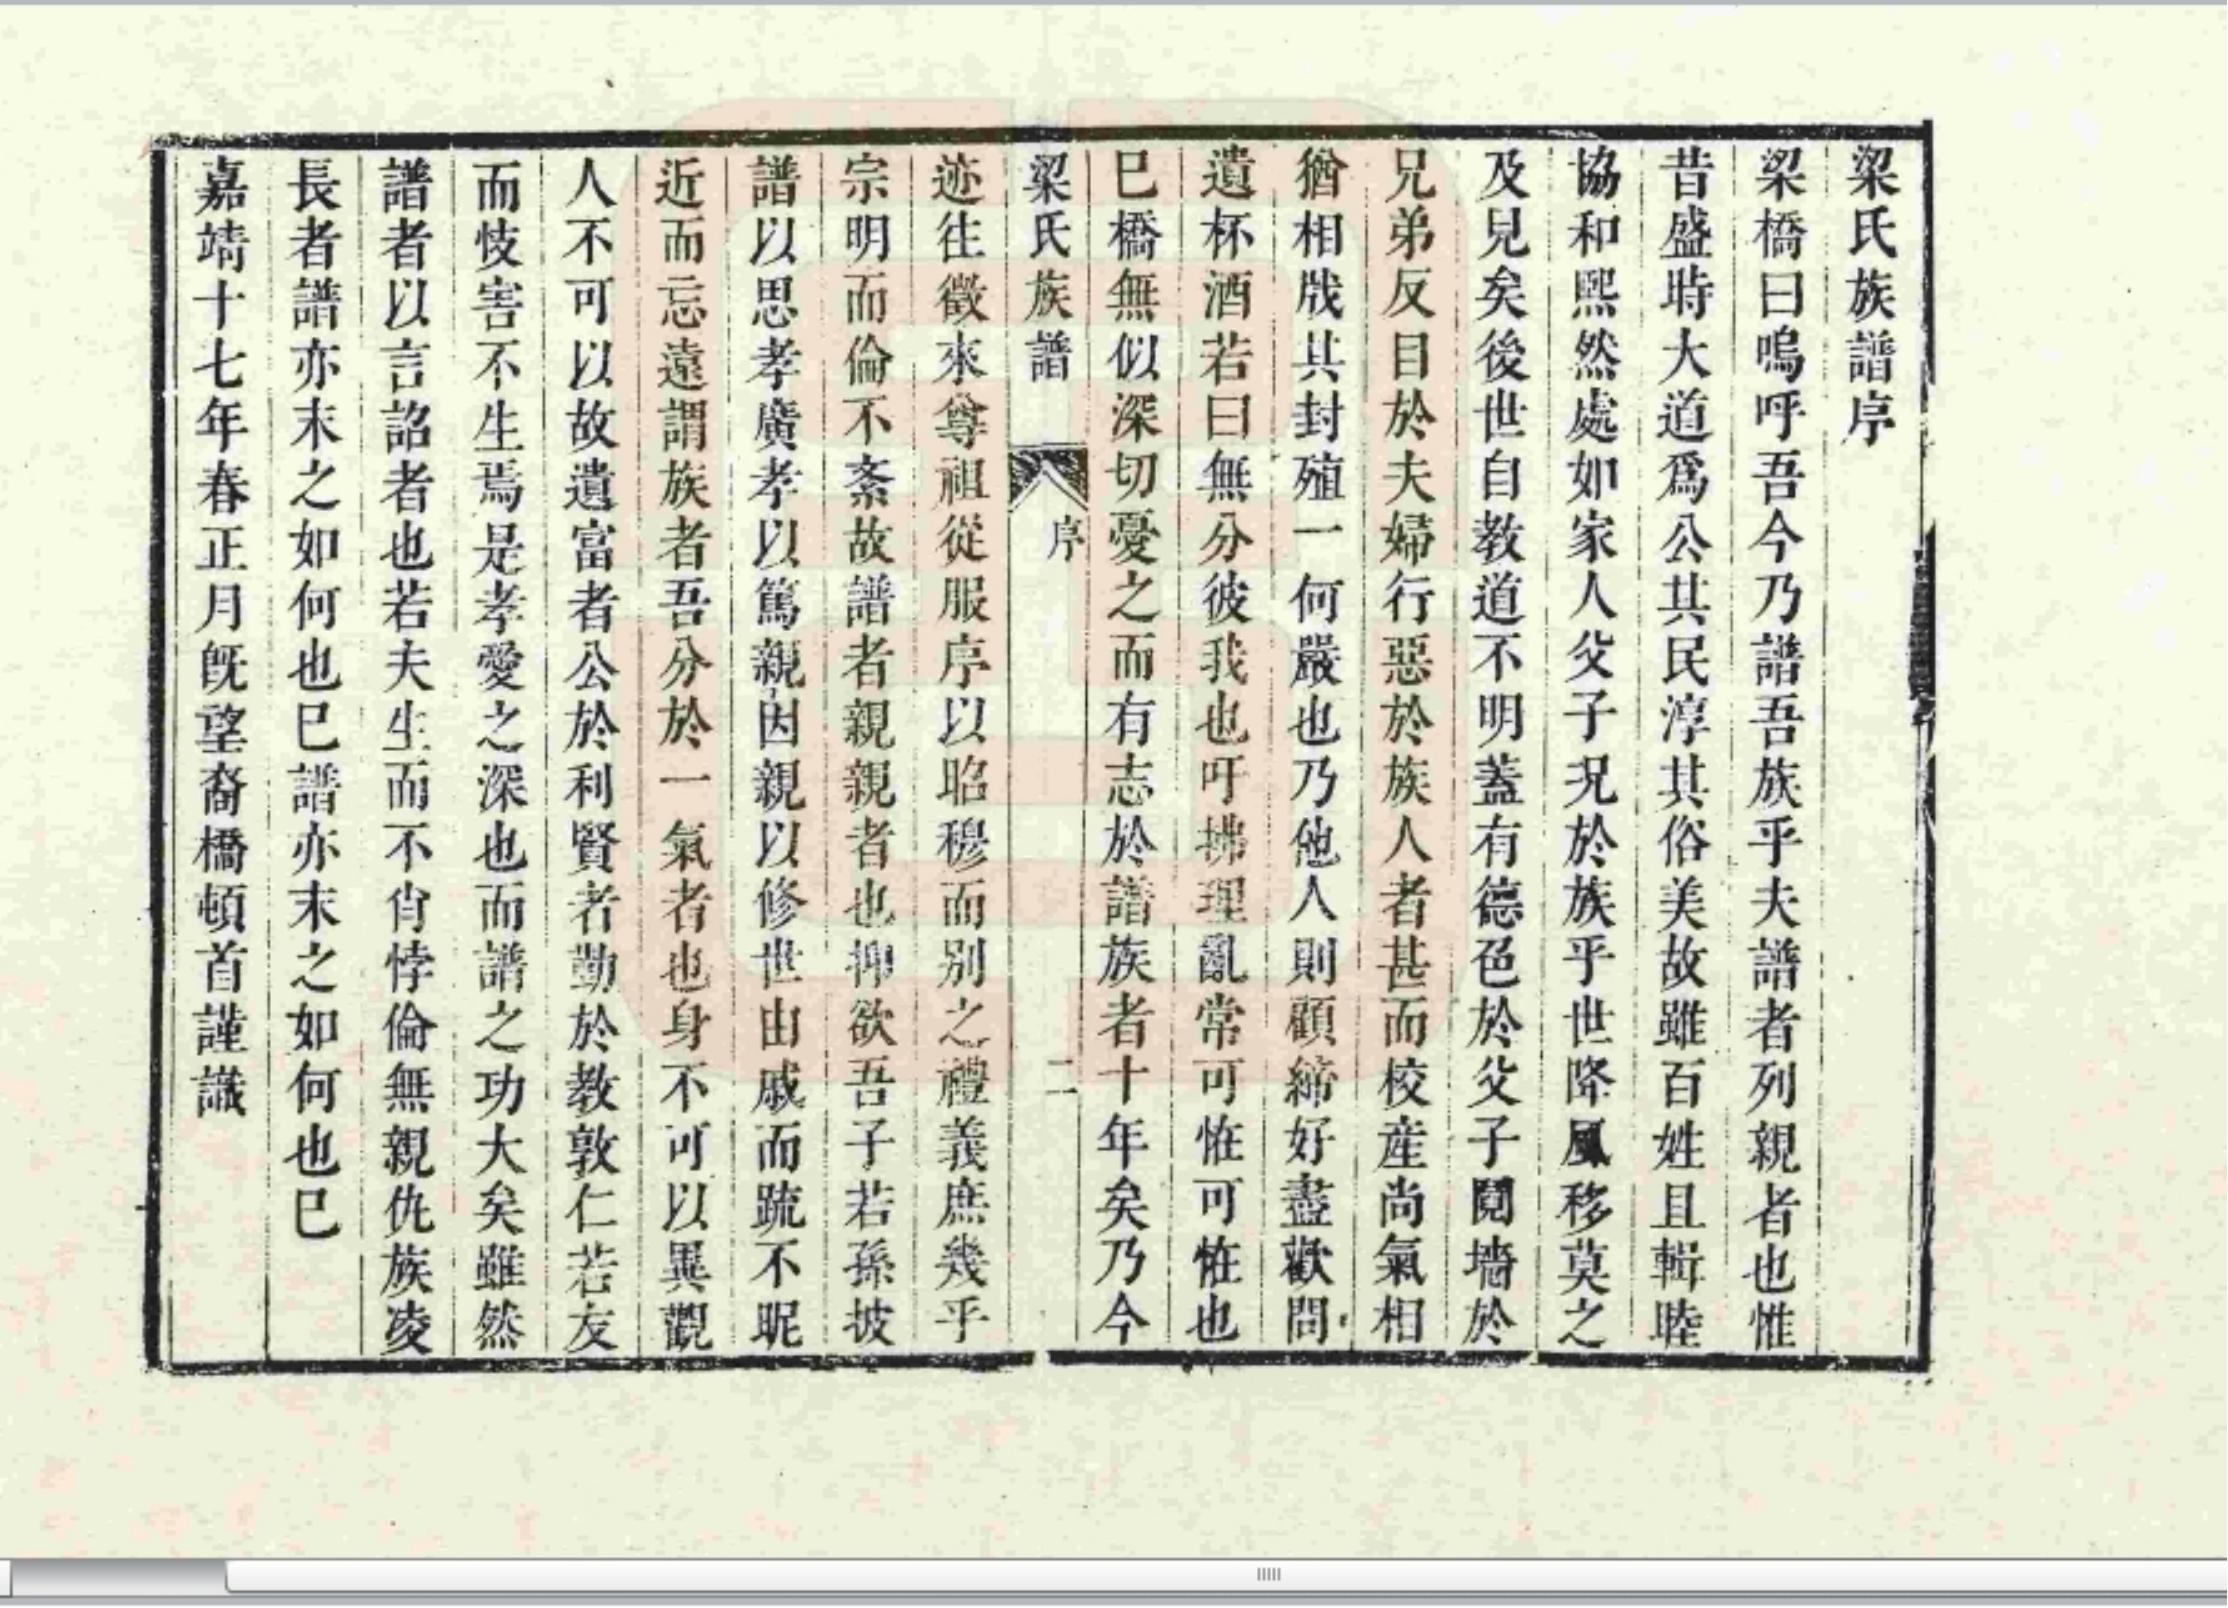 梁氏族譜序
梁橋曰嗚呼吾今乃譜吾族乎夫譜者列親者也惟
昔盛時大道爲公其民淳其俗美故雖百姓且輯睦
協和熙然處如家人父子況於族乎世降風移莫之
及見矣後世自教道不明蓋有德色於父子鬩墻於
兄弟反目於夫婦行惡於族人者甚而校産尚氣相
猶相戕其封殖一何嚴也乃他人則顧締好盡歡問
遺杯酒若曰無分彼我也吁拂理亂常可恠可恠也
巳橋無似深切憂之而有志於譜族者十年矣乃今
梁氏族譜 序 二
迹徃徵來尊祖從服序以昭穆而别之禮義庶幾乎
宗明而倫不紊故譜者親親者也抑欲吾子若孫披
譜以思孝廣孝以篤親因親以修世由戚而䟽不昵
近而忘遠謂族者吾分於一氣者也身不可以異觀
人不可以故遺富者公於利賢者勤於教敦仁若友
而忮害不生焉是孝愛之深也而譜之功大矣雖然
譜者以言詔者也若夫生而不肖悖倫無親仇族凌
長者譜亦末之如何也巳譜亦末之如何也巳
嘉靖十七年春正月旣望裔橋頓首謹識